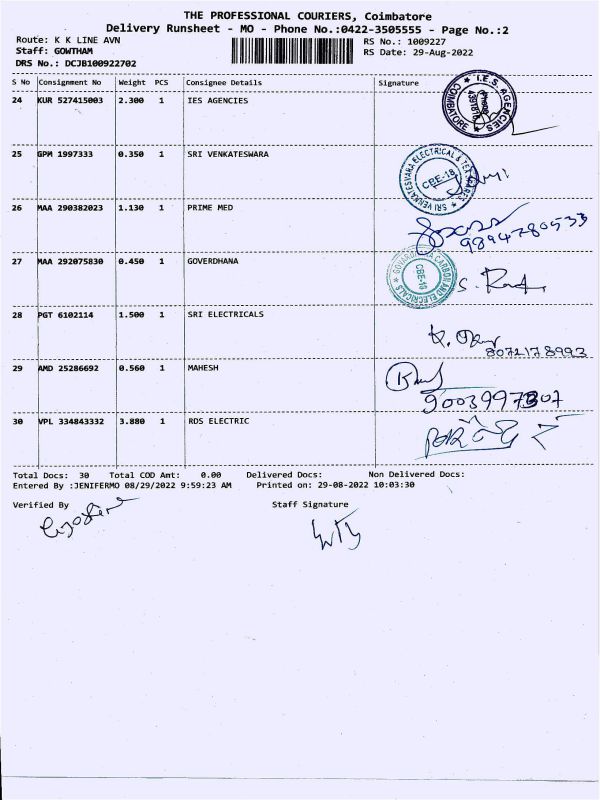 THE PROFESSIONAL COURIERS, Coimbatore
Delivery Runsheet - MO - Phone No.:0422-3505555 - Page No.:2
Route: K K LINE AVN RS No.: 1009227
Staff: GOWTHAM RS Date: 29-Aug-2022
DRS No.: DCJB100922702
S No Consignment No Weight PCS Consignee Details Signature
24 KUR 527415003 2.300 1 IES AGENCIES
I.E.S. AGENCIES COIMBATORE
25 GPM 1997333 0.350 1 SRI VENKATESWARA
SRI VENKATESVARA ELECTRICAL & CBE-18
26 MAA 290382023 1.130 1 PRIME MED
9894780533
27 MAA 292075830 0.450 1 GOVERDHANA
CARBON AND ELECTRICALS CBE-18
28 PGT 6102114 1.500 1 SRI ELECTRICALS
8072178993
29 AMD 25286692 0.560 1 MAHESH
9003997307
30 VPL 334843332 3.880 1 RDS ELECTRIC
Total Docs: 30 Total COD Amt: 0.00 Delivered Docs: Non Delivered Docs:
Entered By :JENIFERMO 08/29/2022 9:59:23 AM Printed on: 29-08-2022 10:03:30
Verified By Staff Signature